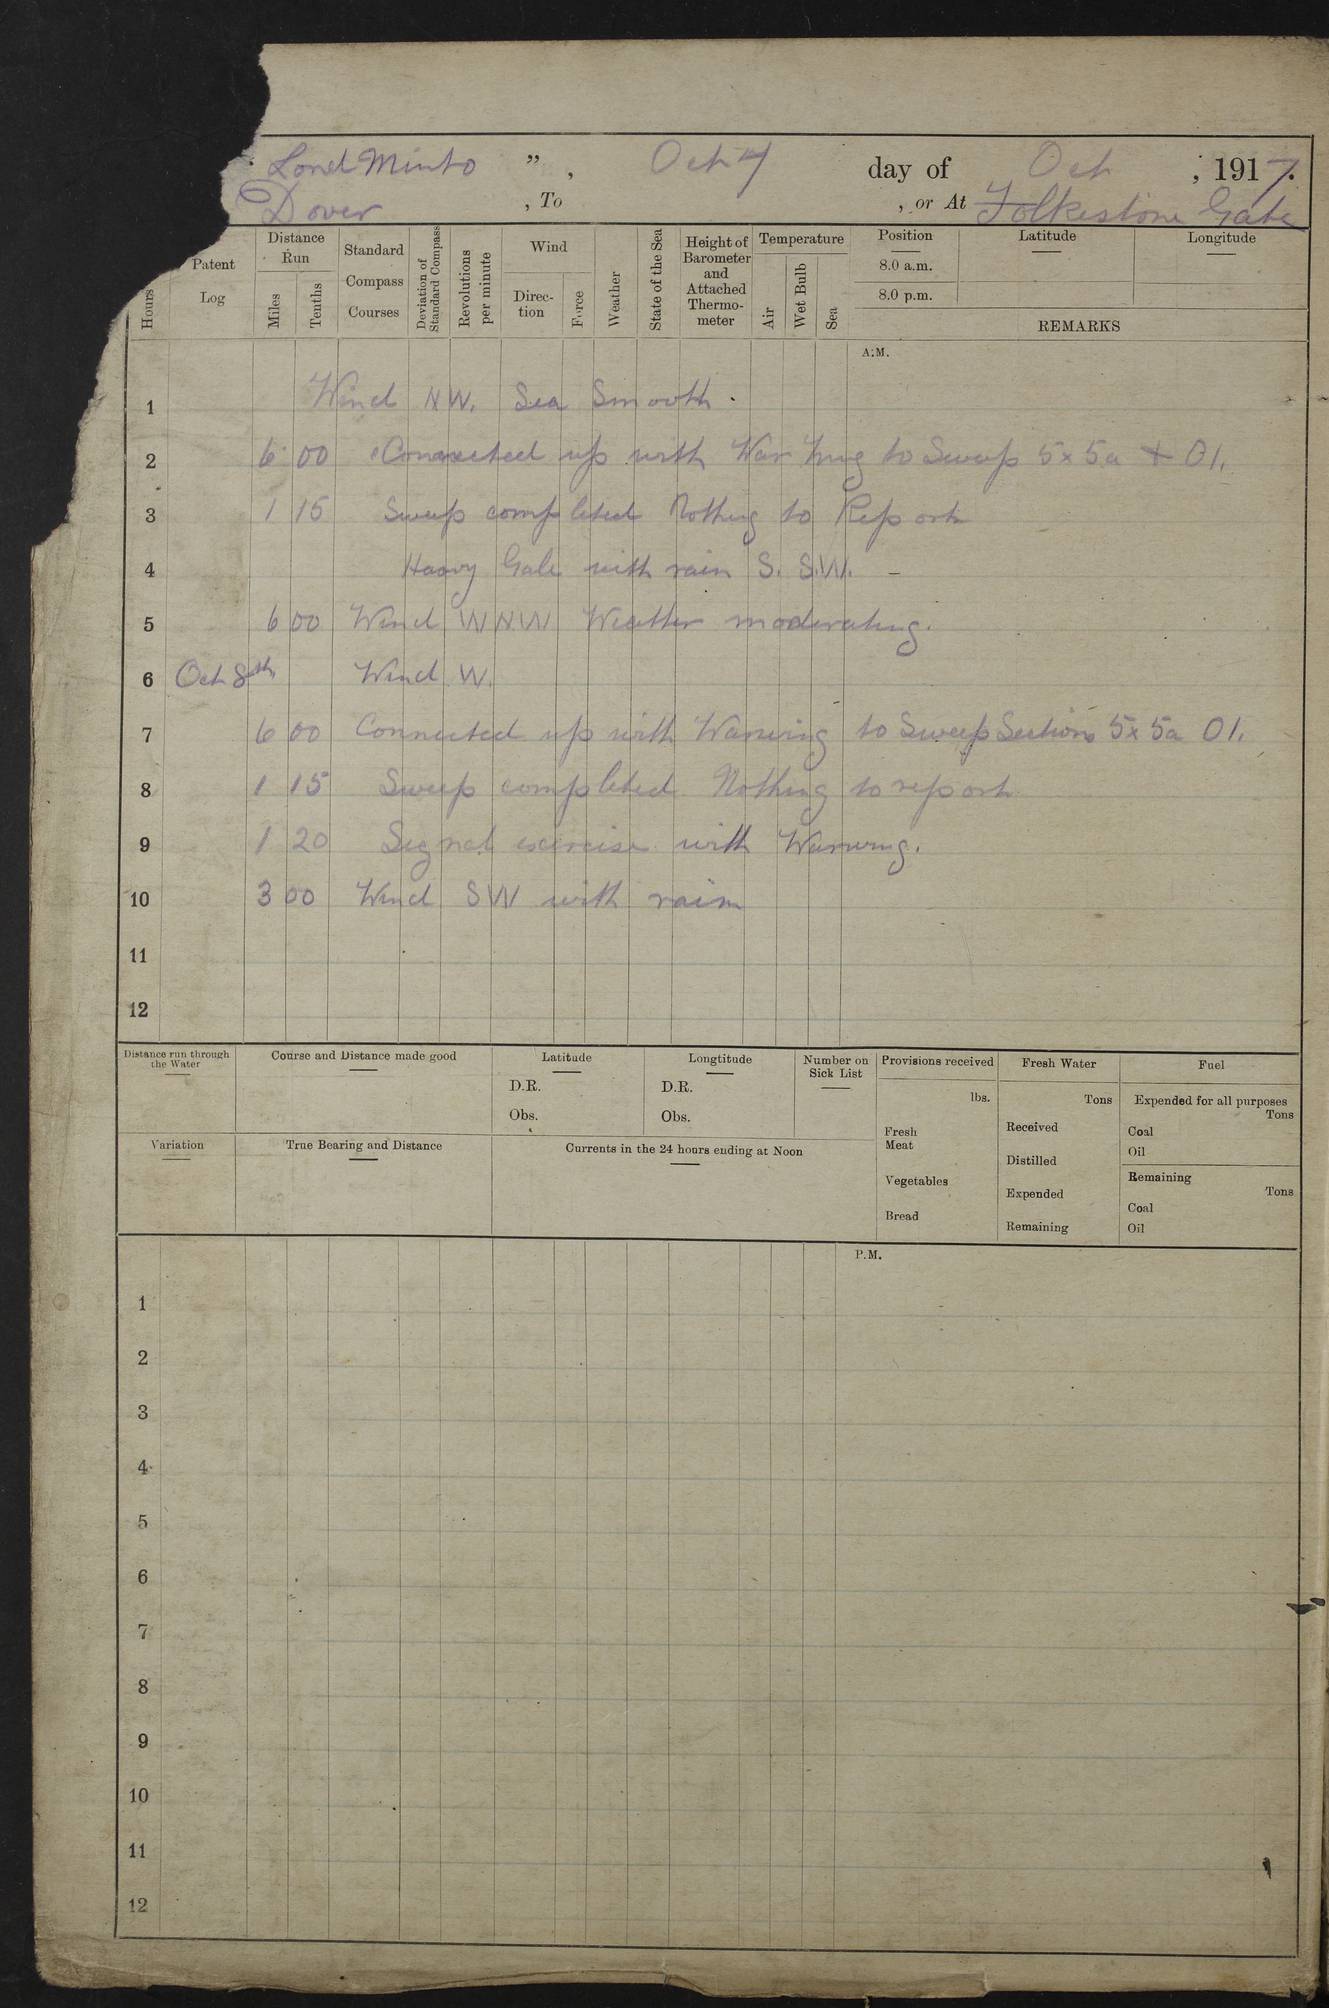 Lord Minto ” , Oct 7 day of Oct ; 1917.
Dover , To , or At Folkestone Gate
Hours Patent Log Distance Run Miles Tenths Standard Compass Courses Deviation of Standard Compass Revolutions per minute Wind Direction Force Weather State of the Sea Height of Barometer and Attached Thermometer Temperature Air Wet Bulb Sea Position 8.0 a.m. 8.0 p.m. Latitude Longitude
REMARKS
A.M.
1 Wind NW. Sea Smooth.
2 6 00 Connected up with Warwing to Sweep 5x 5a + 01.
3 1 15 Sweep completed Nothing to Report
4 Heavy Gale with rain S. S.W. –
5 6 00 Wind WNW Weather moderating.
6 Oct 8th Wind W.
7 6 00 Connected up with Warwing to Sweep Sections 5x 5a 01.
8 1 15 Sweep completed Nothing to report
9 1 20 Signal exercise with Warwing.
10 3 00 Wind SW with rain
11
12
Distance run through the Water Course and Distance made good Latitude Longtitude Number on Sick List Provisions received Fresh Water Fuel
D.R. D.R. lbs. Tons Expended for all purposes Tons
Obs. Obs. Fresh Meat Received Coal
Oil
Variation True Bearing and Distance Currents in the 24 hours ending at Noon Distilled
Vegetables Remaining Tons
Expended Coal
Bread Remaining Oil
P.M.
1
2
3
4
5
6
7
8
9
10
11
12